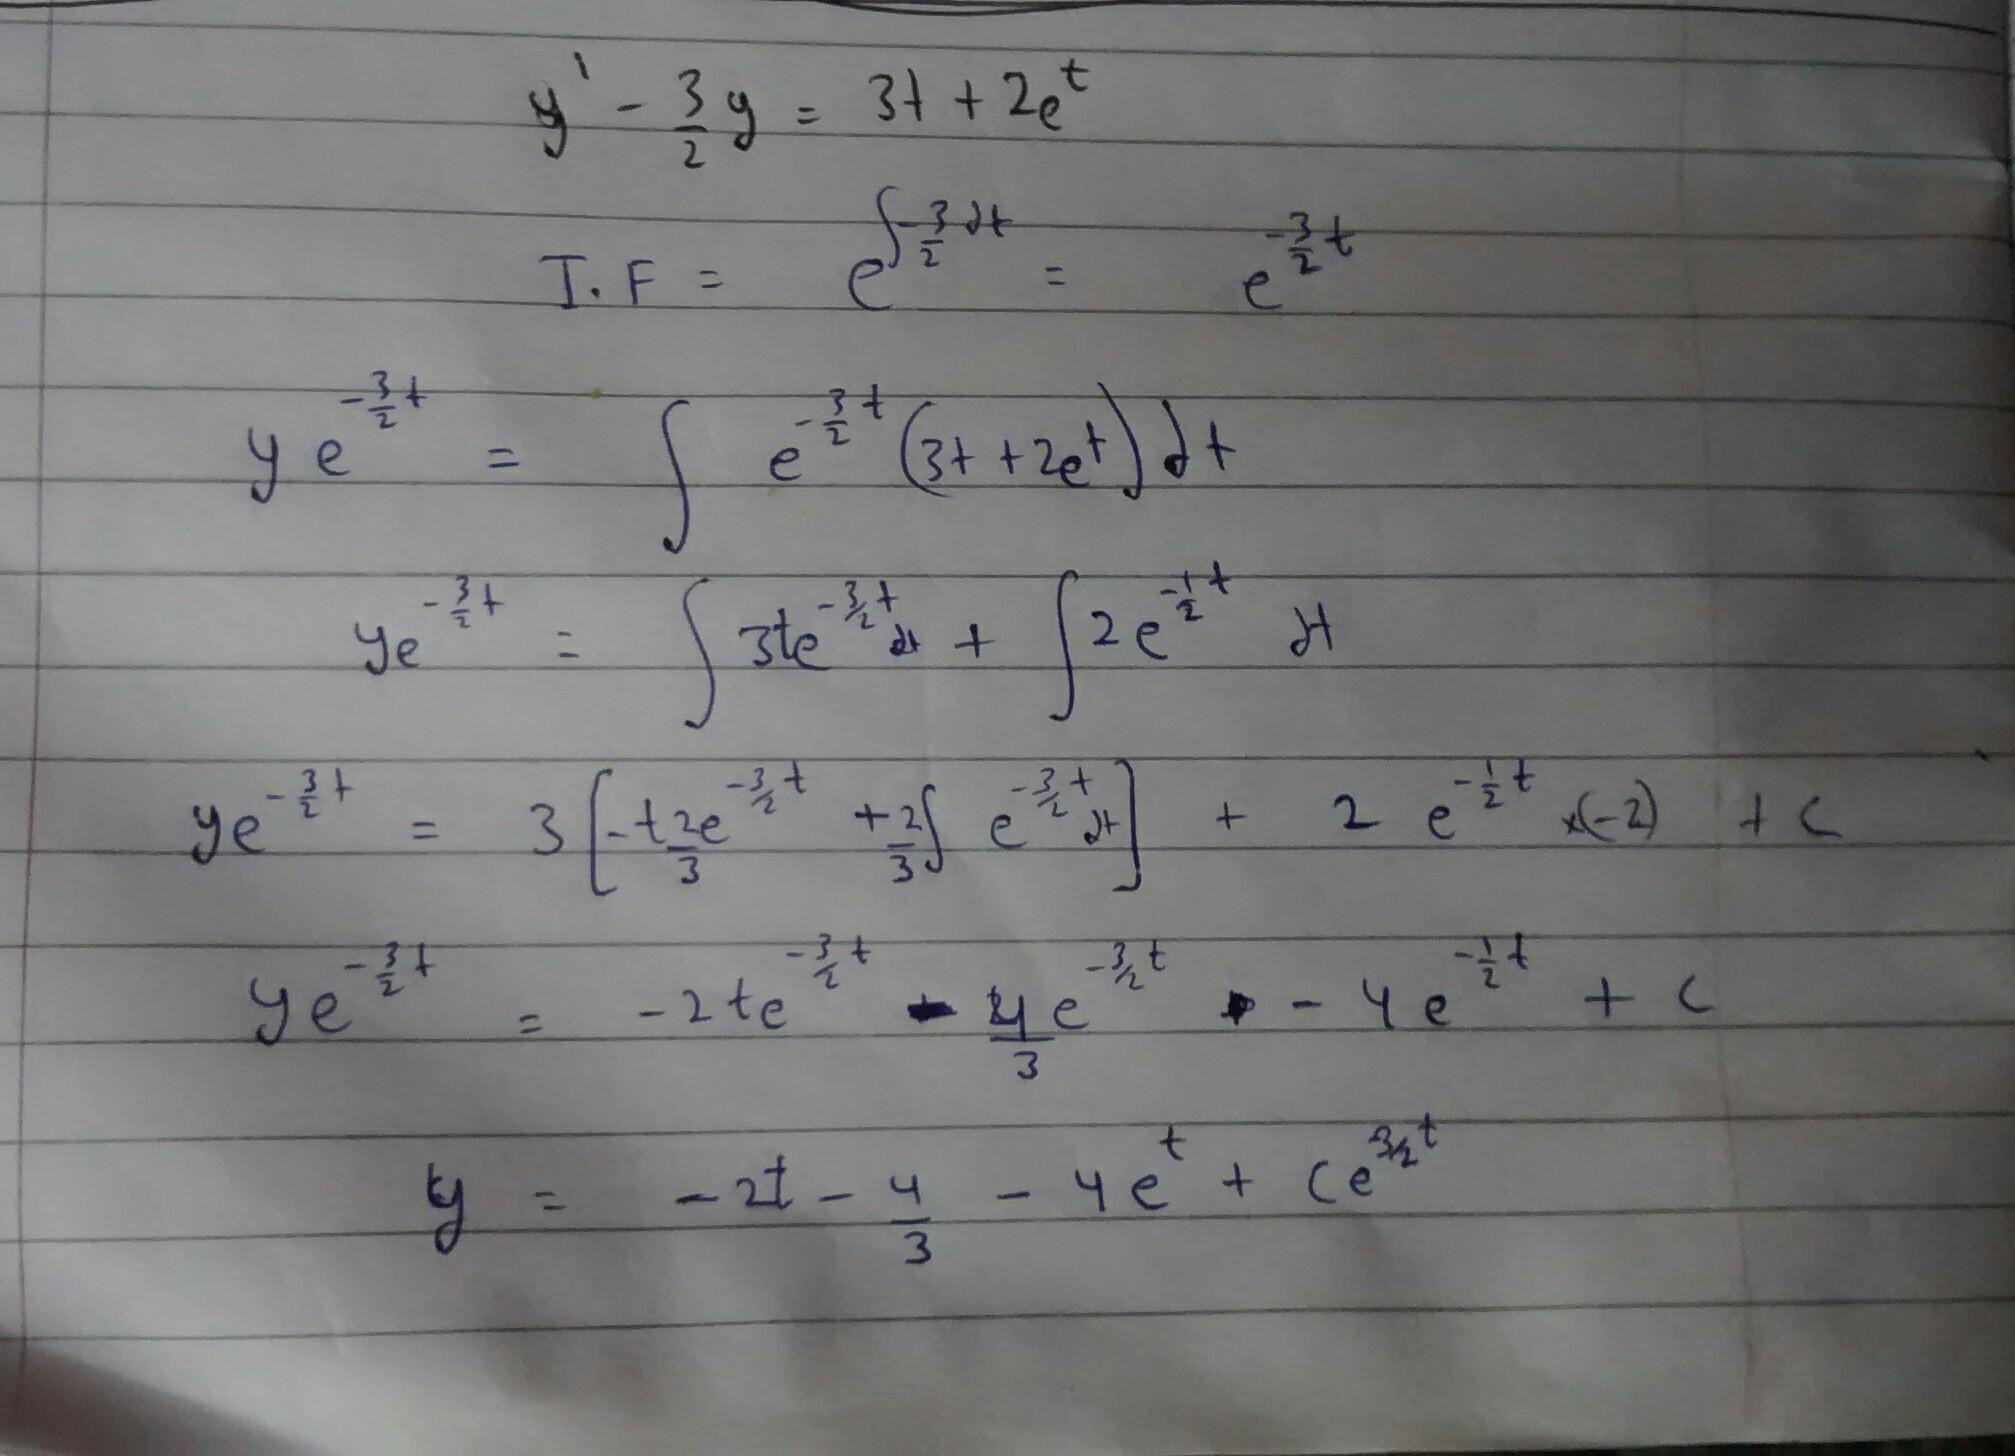 y' - 3/2 y = 3t + 2e^t
I.F = e^{∫-3/2 dt} = e^{-3/2 t}
y e^{-3/2 t} = ∫ e^{-3/2 t} (3t + 2e^t) dt
ye^{-3/2 t} = ∫ 3te^{-3/2 t} dt + ∫ 2e^{-1/2 t} dt
ye^{-3/2 t} = 3 [-t 2/3 e^{-3/2 t} + 2/3 ∫ e^{-3/2 t} dt] + 2 e^{-1/2 t} ×(-2) + C
ye^{-3/2 t} = -2te^{-3/2 t} - 4/3 e^{-3/2 t} - 4e^{-1/2 t} + C
y = -2t - 4/3 - 4e^t + Ce^{3/2 t}